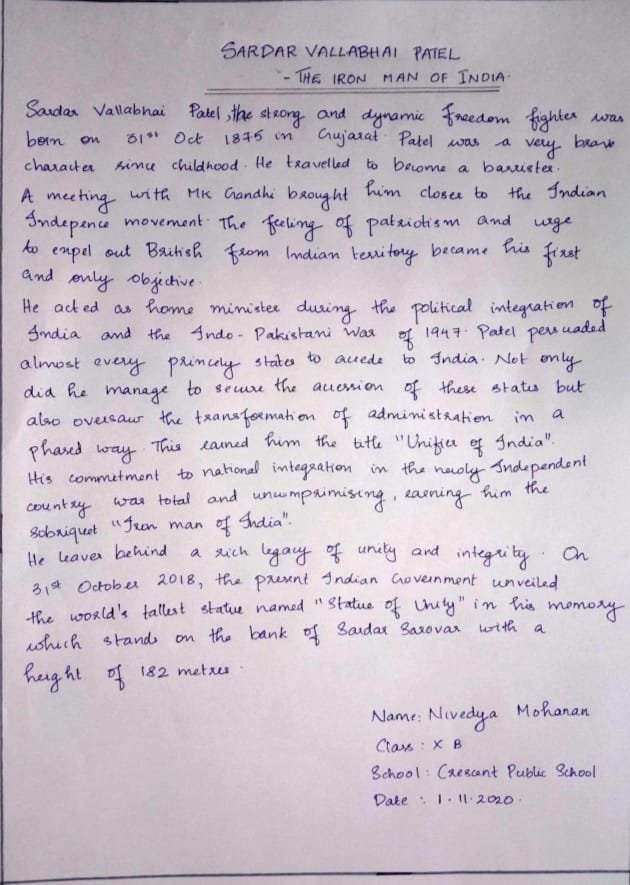 SARDAR VALLABHAI PATEL
- THE IRON MAN OF INDIA.
Sardar Vallabhai Patel, the strong and dynamic freedom fighter was
born on 31st Oct 1875 in Gujarat. Patel was a very brave
character since childhood. He travelled to become a barrister.
A meeting with MK Gandhi brought him closer to the Indian
Indepence movement. The feeling of patriotism and urge
to expel out British from Indian territory became his first
and only objective.
He acted as home minister during the political integration of
India and the Indo-Pakistani War of 1947. Patel persuaded
almost every princely states to accede to India. Not only
did he manage to secure the accession of these states but
also oversaw the transformation of administration in a
phased way. This earned him the title "Unifier of India".
His commitment to national integration in the newly Independent
country was total and uncomprimising, earning him the
Sobriquet "Iron man of India".
He leaves behind a rich legacy of unity and integrity. On
31st October 2018, the present Indian Government unveiled
the world's tallest statue named "Statue of Unity" in his memory
which stands on the bank of Sardar Sarovar with a
height of 182 metres.
Name: Nivedya Mohanan
Class: X B
School: Crescent Public School
Date: 1.11.2020.